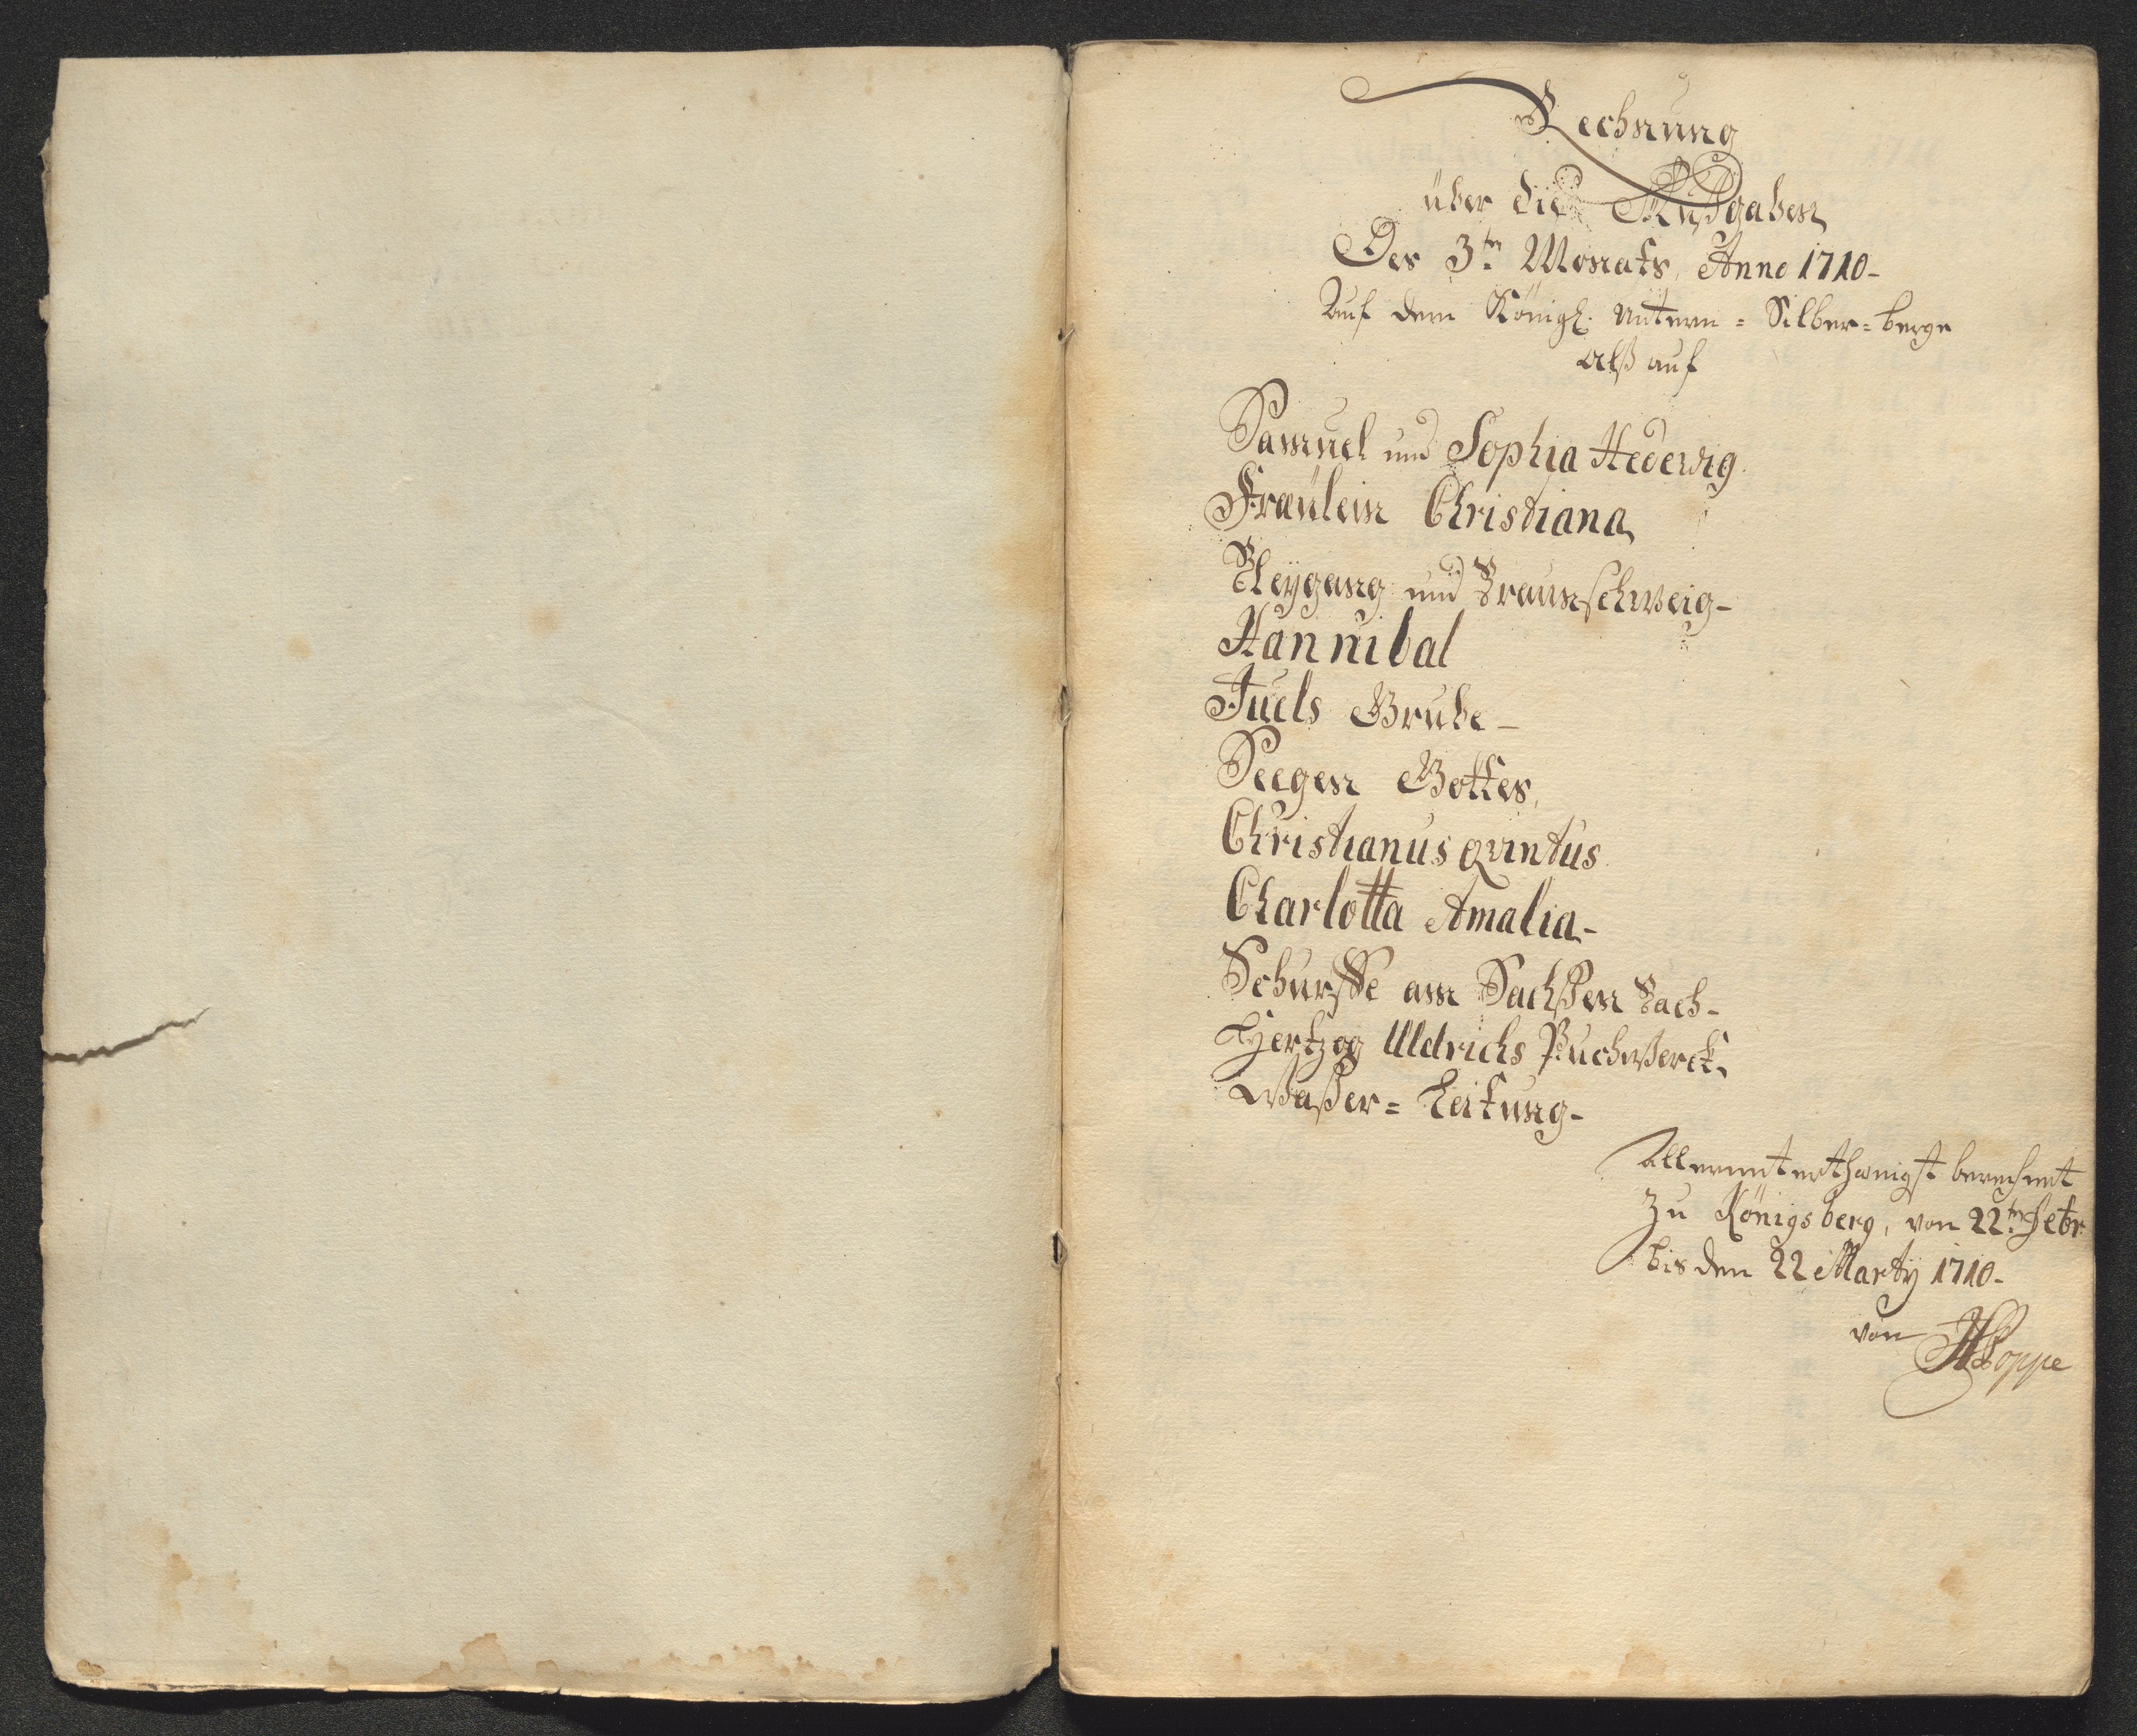 Rechnung
über die Außgaben
Des 3ten Monats, Anno 1710-
Auf dem Königl. Untern=Silber=berge
alß auf
Samuel und Sophia Hedewig.
Fräulein Christiana
Bleygang und Braunschweig-
Hannibal
Juels Grube-
Seegen Gottes,
Christianus Qvintus.
Charlotta Amalia-
Schurffe am Sachßen Bach-
Hertzog Uldrichs Puchwerck,
Waßer=Leitung-
Allerunterthänigst berechnet
Zu Königsberg, von 22ten Febr.
bis den 22 Marty 1710-
von HPoppe